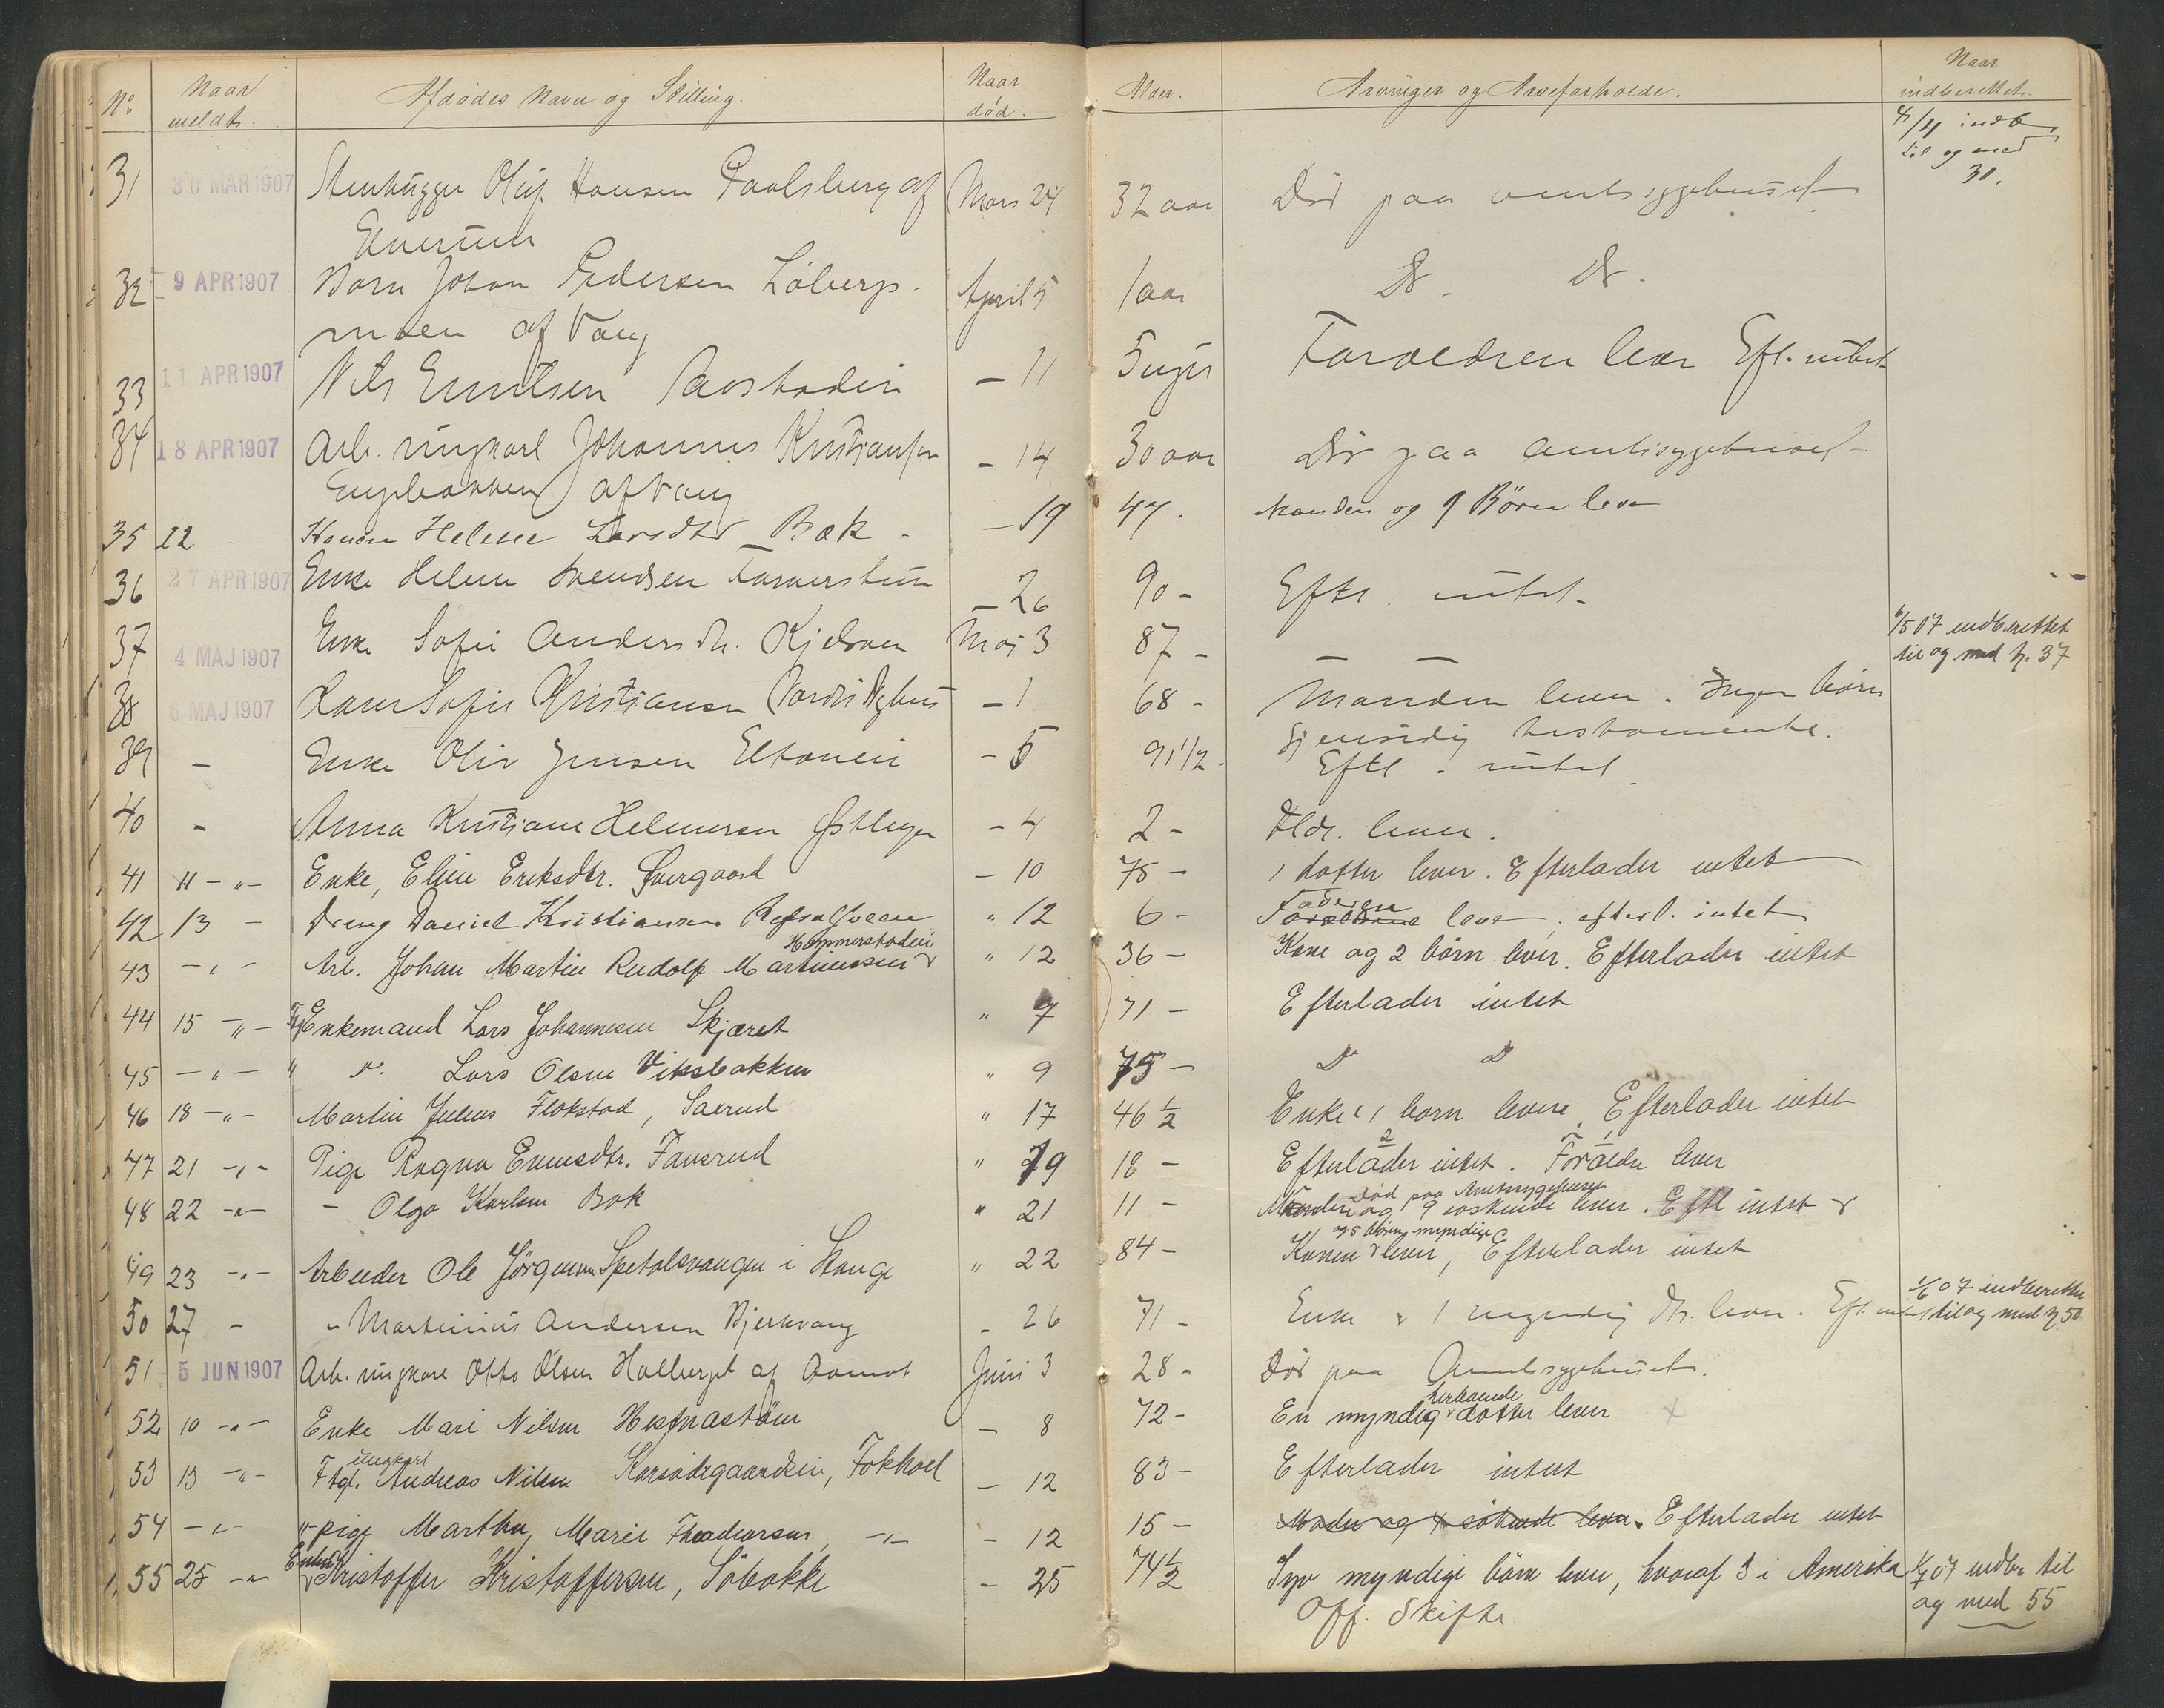 No. Naar meldt. Afdødes Navn og Stilling. Naar død. Alder. Arvinger og Arveforholde. Naar indberettet.
4/4 indb
til og med
31.
31 30 MAR 1907 Stenhugger Oluf Hansen af Mars 24 32 aar Död paa amtssygehuset
Elverum
32 9 APR 1907 Barn Johan Pedersen Löbergs- April 5 1 aar Do. Do.
moen af Vang
33 11 APR 1907 Nils Emilsen - 11 5 uger Forældren lever Eft. intet
34 18 APR 1907 Arb. ungkarl Johannes Kristiansen - 14 30 aar Död paa Amtssygehuset
Engebakken af Vang
35 22 - Konen Helene Larsdtr Bæk - - 19 47 - Manden og 9 Börn lever
36 27 APR 1907 Enke Helene Svendsen - 26 90 - Efterl. intet -
37 4 MAJ 1907 Enke Sofie Andersdtr. Maj 3 87 - — —
6/5 07 indberettet
til og med No. 37
38 6 MAJ 1907 Sofie Kristiansen - 1 68 - Manden lever. Ingen börn
Gjensidig testamente.
39 - Enke Olia Jensen - 5 91 1/2 - Eftl. intet
40 - Anna Kristiane Helmersen - 4 2 - Fldr. lever.
41 11 -"- Enke, Eline Eriksdtr. Øvergaard - 10 75 - 1 datter lever. Efterlader intet
42 13 - Dreng Daniel Kristiansen " 12 6 - Forældrene Faderen lever. efterl. intet
Hommerstadeie
43 -"- Arb. Johan Martin Rudolf Martinussen " 12 36 - Kone og 2 börn lever. Efterlader intet
44 15 -"- Ftg Enkemand Lars Johannesen Skjæret " 7 71 - Efterlader intet
45 -"- " Do. Lars Olsen Viksbakken " 9 75 - Do Do
46 18 -"- Martin Julius Flokstad, Saerud " 17 46 1/2 Enke, 1 barn lever, Efterlader intet
47 21 -"- Pige Ragna Evensdtr. Fauserud " 19 18 - Efterlader intet. Forældre lever
Död paa Amtssygehuset
48 22 -"- - Olga Karlsen Bæk " 21 11 - og 9 söskende lever. Eftl intet
og 5 börn, myndige
49 23 -"- Arbeider Ole Jörgensen Spetalsvangen i Stange " 22 84 - Konen lever, Efterlader intet
50 27 - " Martinius Andersen Bjerkvang - 26 71 - Enke & 1 myndig dtr. lever. Eft. intet
1/6 07 indberettet
til og med No 50
51 5 JUN 1907 Arb. ungkarl Otto Olsen Halberget af Aamot Juni 3 28 - Död paa Amtssygehuset.
herboende
52 10 -"- Enke Mari Nilsen - 8 72 - En myndig datter lever
Ungkarl
53 13 -"- Ftgl. Andreas Nilsen Korsödegaardseie, Fokhoel - 12 83 - Efterlader intet
54 -"- "- pige Martha Marie -"- - 12 15 - Moder og söskende lever. Efterlader intet
55 25 -"- Enkem. Kristoffer Kristoffersen, Söbakke - 25 74 1/2 Syv myndige börn lever, hvoraf 3 i Amerika
Off. Skifte
1/7 07 indbr til
og med 55